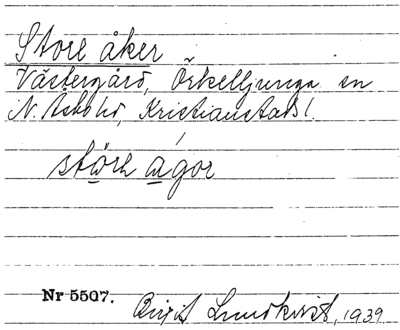 Store åker
Västergård, Örkelljunga sn
N. Åsbo hd, Kristianstads l.
störe ågor
Nr 5507.
Birgit Lundkvist, 1939